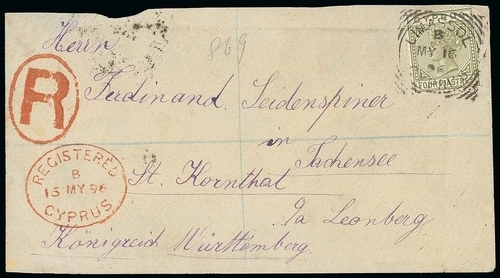 Herrn
869
LIMASSOL
B
MY 16
FOUR PIASTRE
R
Ferdinand Seidenspiner
in
Tachensee
REGISTERED
B
15 MY 96
CYPRUS
St. Kornthal
O/a Leonberg
Königreich Württemberg.